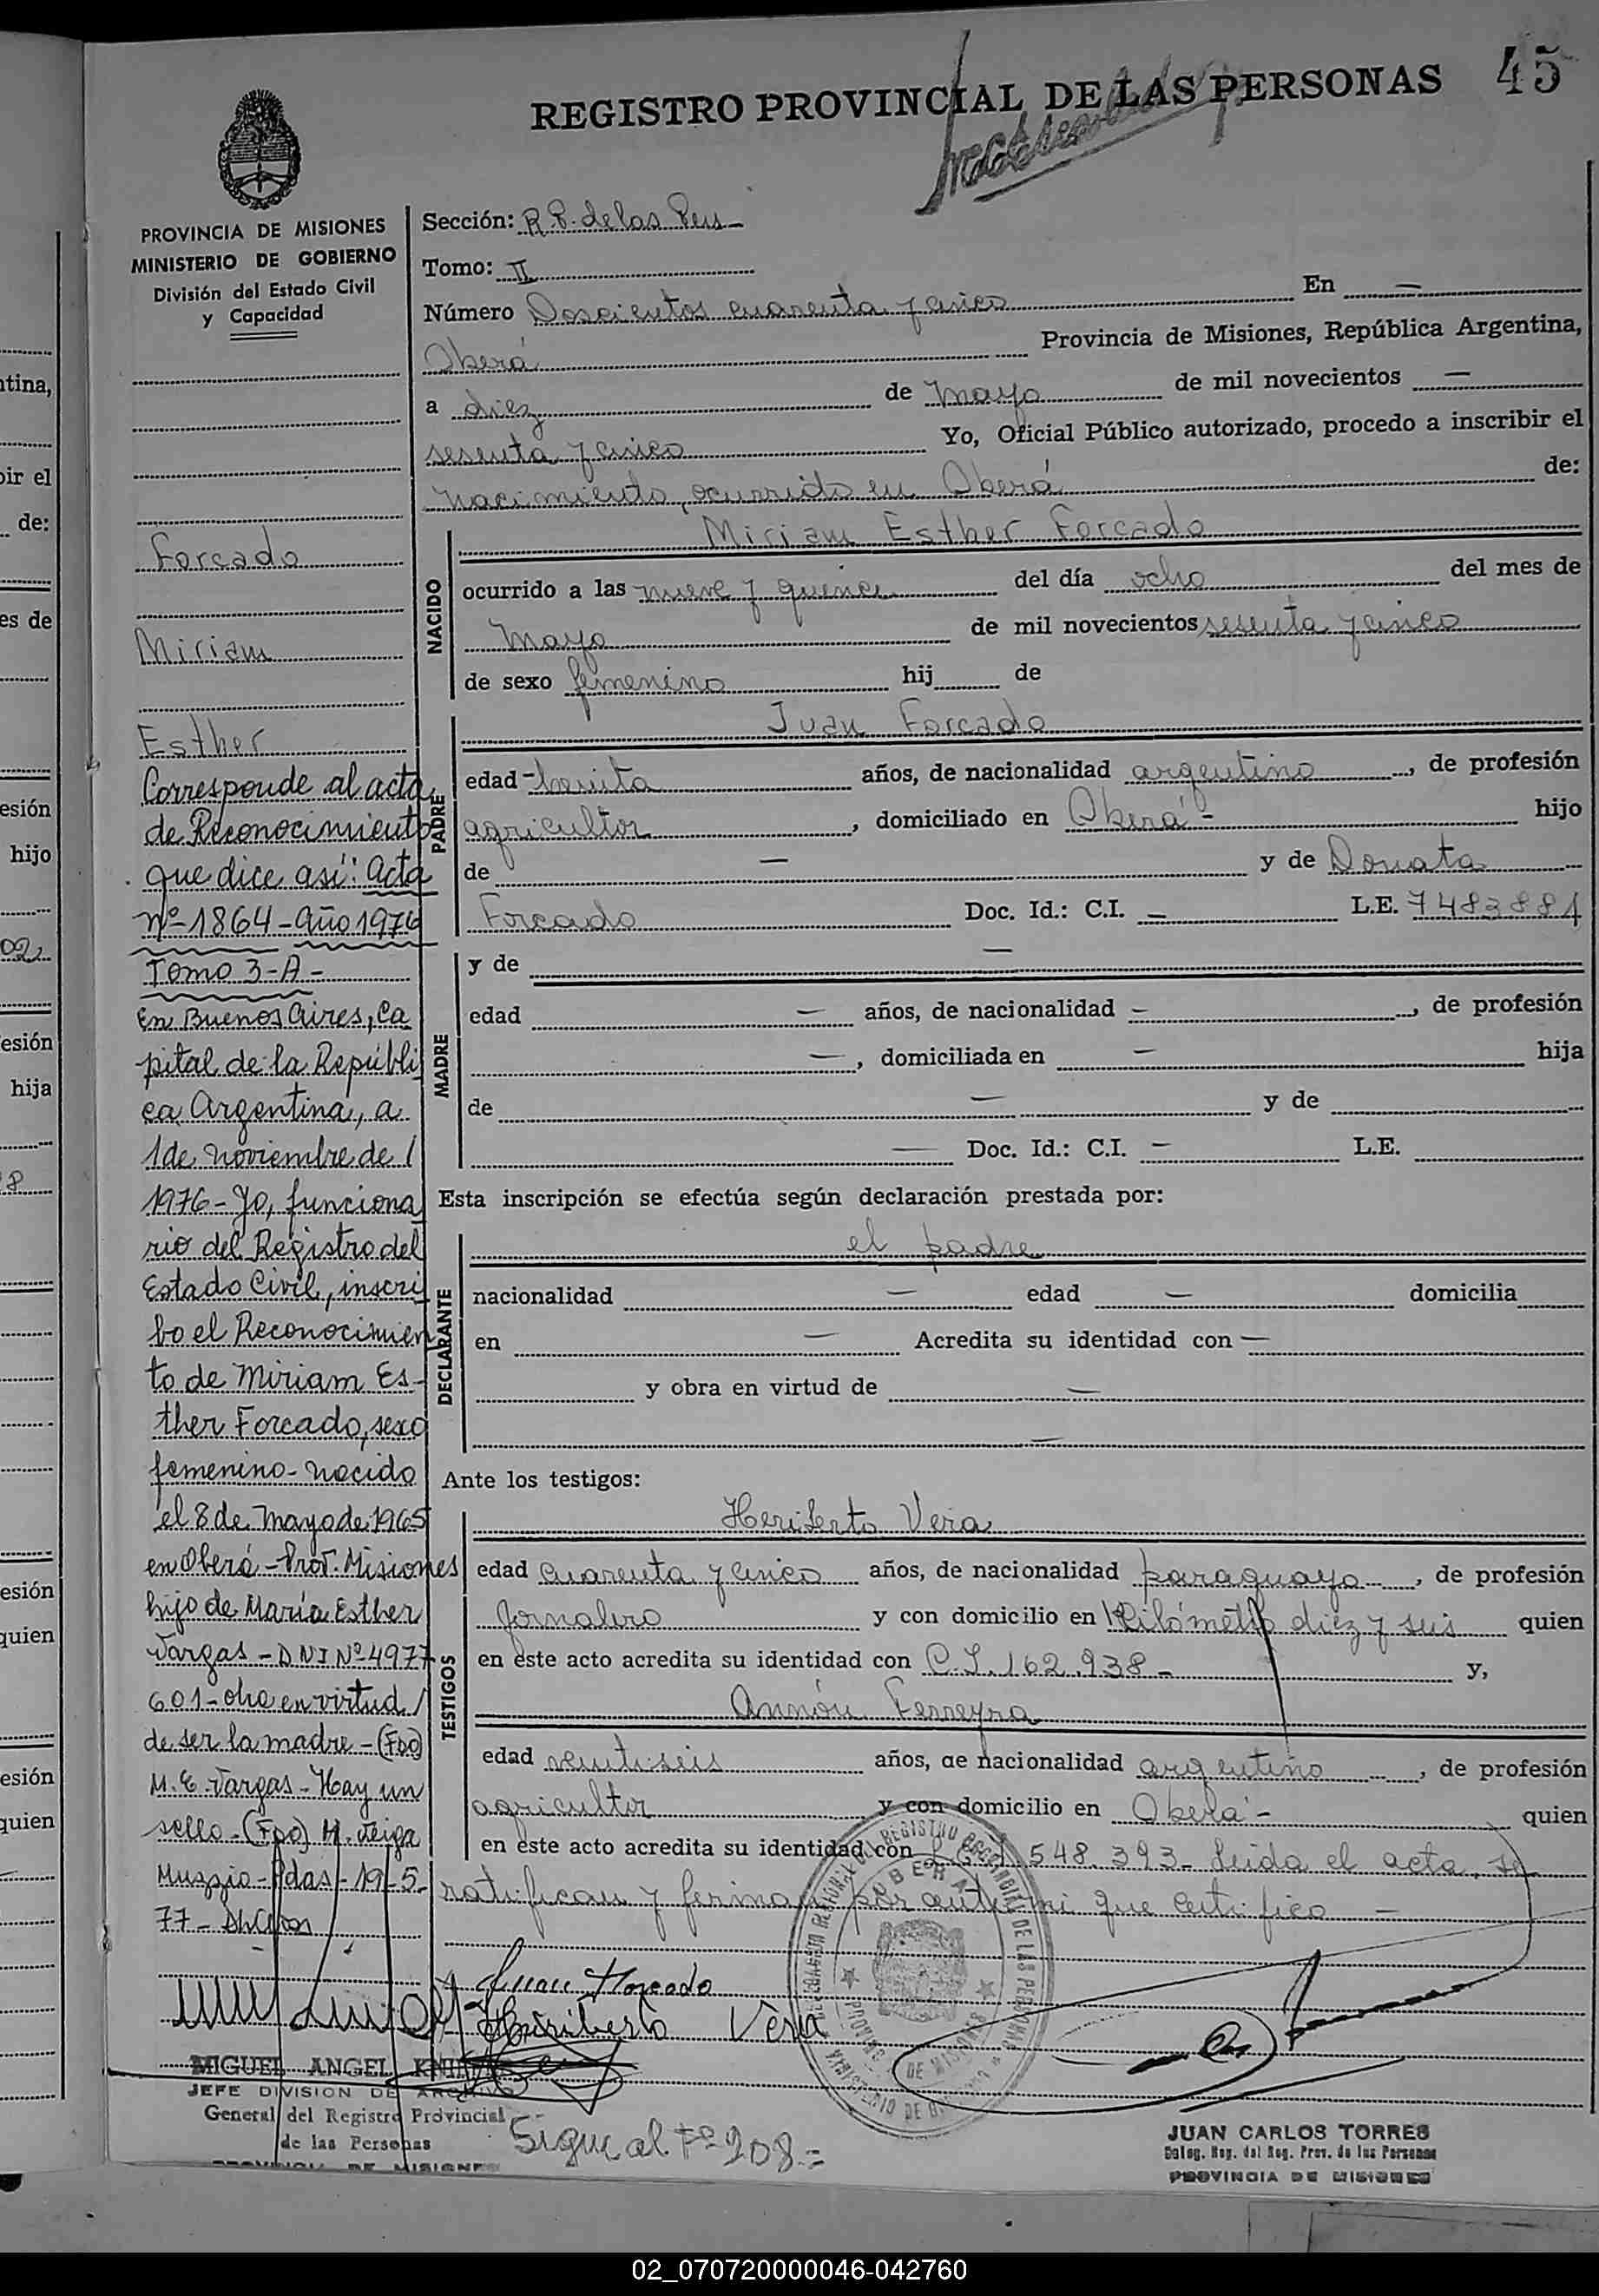 45
REGISTRO PROVINCIAL DE LAS PERSONAS
PROVINCIA DE MISIONES
MINISTERIO DE GOBIERNO
División del Estado Civil
y Capacidad
Forcado
Miriam
Esther
Corresponde al acta
de Reconocimiento
que dice así: Acta
nº 1864 - Año 1976
Tomo 3-A -
En Buenos Aires, Ca
pital de la Repúbli
ca Argentina, a
1 de noviembre de /
1976 - Yo, funciona
rio del Registro del
Estado Civil, inscri
bo el Reconocimien
to de Miriam Es-
ther Forcado, sexo
femenino - nacido
el 8 de Mayo de 1965
en Oberá - Prov. Misiones
hijo de María Esther
Vargas - DNI Nº 4977
601 - obra en virtud /
de ser la madre - (Fdo)
M. E. Vargas - Hay un
sello - (Fdo) H. Veiga
Muzzio - Pdas - 19-5-
77 -
MIGUEL ANGEL
JEFE DIVISION DE ARCHIVO
General del Registro Provincial
de las Personas
PROVINCIA DE MISIONES
Sección: R. P. de las Pers
Tomo: II
Número Doscientos cuarenta y cinco En —
Oberá Provincia de Misiones, República Argentina,
a diez de Mayo de mil novecientos —
sesenta y cinco Yo, Oficial Público autorizado, procedo a inscribir el
nacimiento, ocurrido en Oberá de:
NACIDO
Miriam Esther Forcado
ocurrido a las nueve y quince del día ocho del mes de
Mayo de mil novecientos sesenta y cinco
de sexo femenino hij de
PADRE
Juan Forcado
edad treinta años, de nacionalidad argentino, de profesión
agricultor, domiciliado en Oberá - hijo
de — y de Donata
Forcado Doc. Id.: C.I. — L.E. 7483884
MADRE
y de —
edad — años, de nacionalidad —, de profesión
—, domiciliada en — hija
de — y de
— Doc. Id.: C.I. — L.E.
Esta inscripción se efectúa según declaración prestada por:
DECLARANTE
el padre
nacionalidad — edad — domicilia
en — Acredita su identidad con —
y obra en virtud de —
—
Ante los testigos:
TESTIGOS
Heriberto Vera
edad cuarenta y cinco años, de nacionalidad paraguayo, de profesión
jornalero y con domicilio en Kilómetro diez y seis quien
en este acto acredita su identidad con C.I. 162.938 - y,
Ferreyra
edad veintiseis años, de nacionalidad argentino, de profesión
agricultor y con domicilio en Oberá - quien
en este acto acredita su identidad con 548.393 - Leida el acta, se
ratifican y firman por ante mi que certifico —
Juan Forcado
Heriberto Vera
Sigue al Fº 208 =
JUAN CARLOS TORRES
Deleg. Reg. del Reg. Prov. de las Personas
PROVINCIA DE MISIONES
02_070720000046-042760